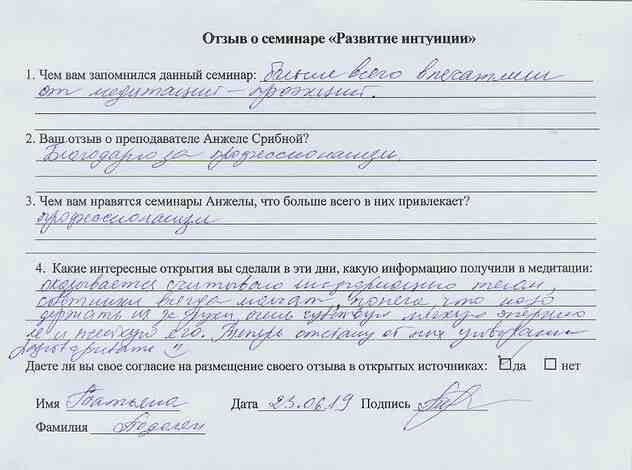 Отзыв о семинаре «Развитие интуиции»
1. Чем вам запомнился данный семинар: больше всего впечатлили
от медитаций – проэкций.
2. Ваш отзыв о преподавателе Анжеле Срибной?
Благодарю за профессионализм.
3. Чем вам нравятся семинары Анжелы, что больше всего в них привлекает?
профессионализм
4. Какие интересные открытия вы сделали в эти дни, какую информацию получили в медитации:
оказывается считываю информацию телом,
всегда молчат, поняла, что надо
держать их за руки, очень чувствую мягкую энергию
её и жесткую его. Теперь отстану от них
разговаривать
Даете ли вы свое согласие на размещение своего отзыва в открытых источниках: да нет
Имя Татьяна Дата 23.06.19 Подпись
Фамилия